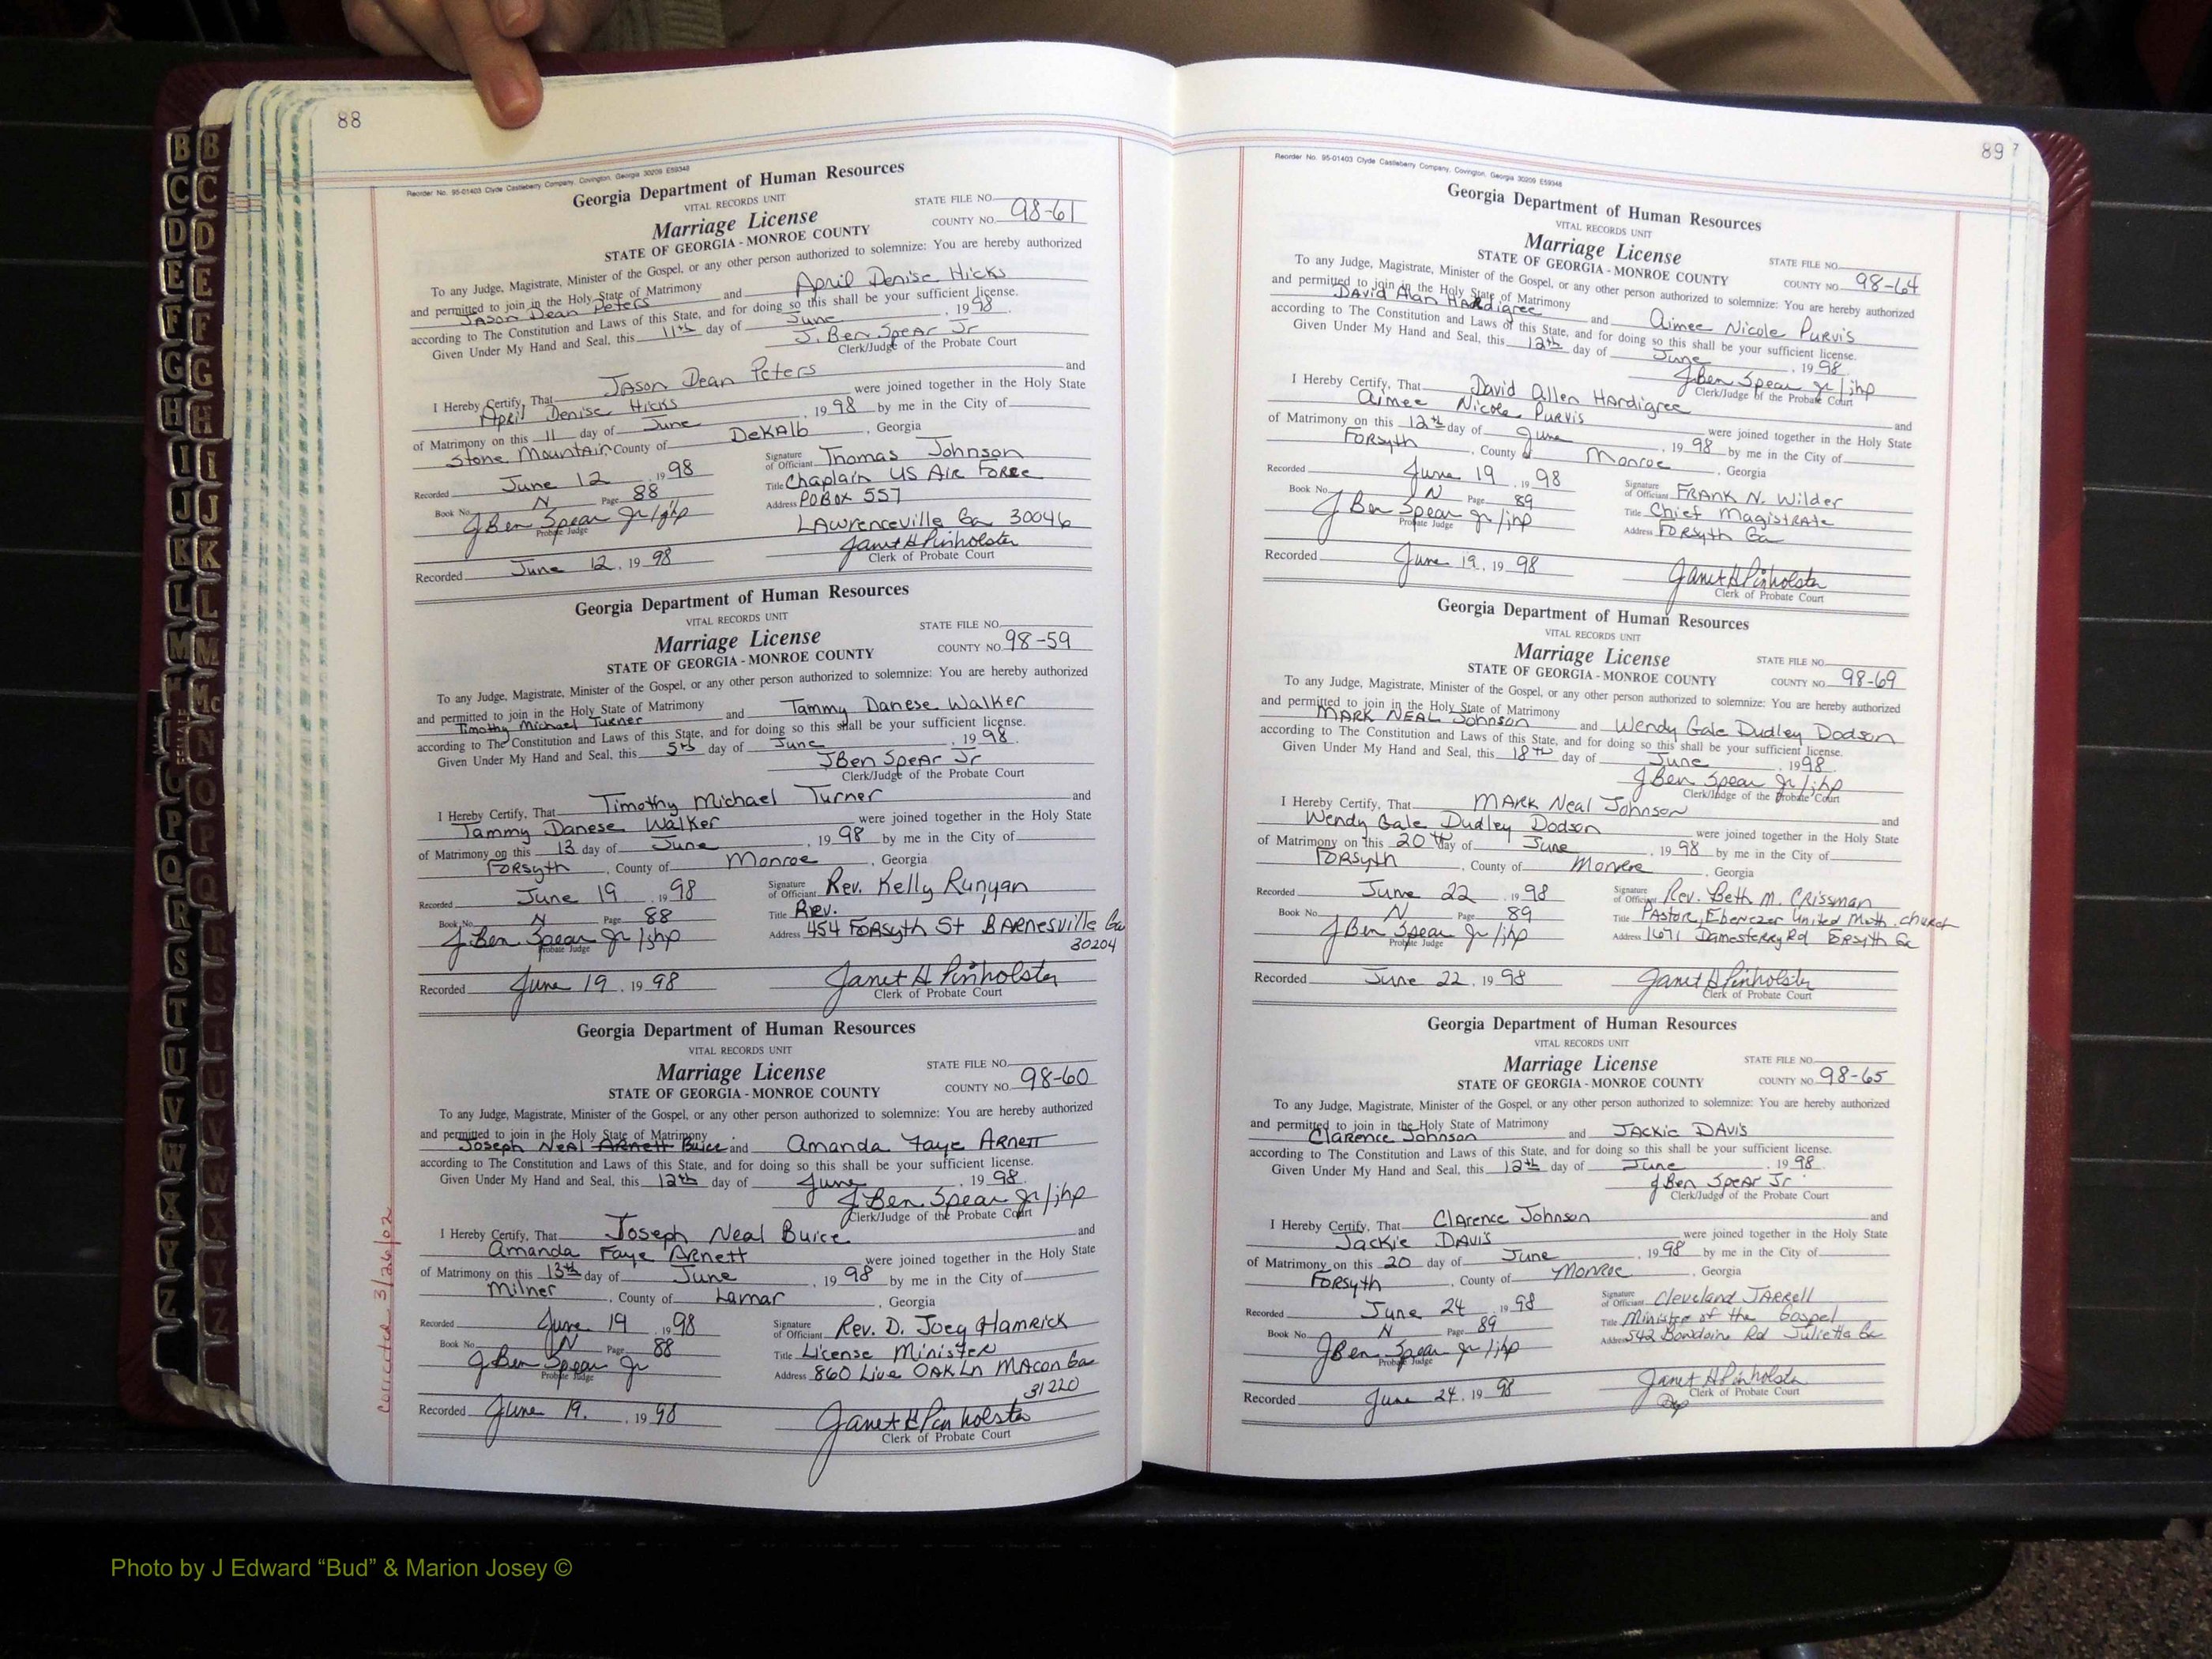 88
Reorder No. 95-01403 Clyde Castleberry Company, Covington, Georgia 30209 E59348
Georgia Department of Human Resources
VITAL RECORDS UNIT
STATE FILE NO.
Marriage License
COUNTY NO. 98-61
STATE OF GEORGIA - MONROE COUNTY
To any Judge, Magistrate, Minister of the Gospel, or any other person authorized to solemnize: You are hereby authorized
and permitted to join in the Holy State of Matrimony
Jason Dean Peters and April Denise Hicks
according to The Constitution and Laws of this State, and for doing so this shall be your sufficient license.
Given Under My Hand and Seal, this 11th day of June, 1998.
J. Ben Spear Jr
Clerk/Judge of the Probate Court
I Hereby Certify, That Jason Dean Peters and
April Denise Hicks were joined together in the Holy State
of Matrimony on this 11 day of June, 1998 by me in the City of
Stone Mountain, County of DeKalb, Georgia
Recorded June 12, 1998
Signature of Officiant Thomas Johnson
Book No. N Page 88
Title Chaplain US Air Force
J Ben Spear Jr/jhp
Probate Judge
Address PO Box 557
Lawrenceville Ga 30046
Recorded June 12, 1998
Janet H Pinholster
Clerk of Probate Court
Georgia Department of Human Resources
VITAL RECORDS UNIT
STATE FILE NO.
Marriage License
COUNTY NO. 98-59
STATE OF GEORGIA - MONROE COUNTY
To any Judge, Magistrate, Minister of the Gospel, or any other person authorized to solemnize: You are hereby authorized
and permitted to join in the Holy State of Matrimony
Timothy Michael Turner and Tammy Danese Walker
according to The Constitution and Laws of this State, and for doing so this shall be your sufficient license.
Given Under My Hand and Seal, this 5th day of June, 1998.
J Ben Spear Jr
Clerk/Judge of the Probate Court
I Hereby Certify, That Timothy Michael Turner and
Tammy Danese Walker were joined together in the Holy State
of Matrimony on this 13 day of June, 1998 by me in the City of
Forsyth, County of Monroe, Georgia
Recorded June 19, 1998
Signature of Officiant Rev. Kelly Runyan
Book No. N Page 88
Title Rev.
J Ben Spear Jr/jhp
Probate Judge
Address 454 Forsyth St Barnesville Ga
30204
Recorded June 19, 1998
Janet H Pinholster
Clerk of Probate Court
Georgia Department of Human Resources
VITAL RECORDS UNIT
STATE FILE NO.
Marriage License
COUNTY NO. 98-60
STATE OF GEORGIA - MONROE COUNTY
To any Judge, Magistrate, Minister of the Gospel, or any other person authorized to solemnize: You are hereby authorized
and permitted to join in the Holy State of Matrimony
Joseph Neal Arnett Buice and Amanda Faye Arnett
according to The Constitution and Laws of this State, and for doing so this shall be your sufficient license.
Given Under My Hand and Seal, this 12th day of June, 1998.
J Ben Spear Jr/jhp
Clerk/Judge of the Probate Court
I Hereby Certify, That Joseph Neal Buice and
Amanda Faye Arnett were joined together in the Holy State
of Matrimony on this 13th day of June, 1998 by me in the City of
Milner, County of Lamar, Georgia
Recorded June 19, 1998
Signature of Officiant Rev. D. Joey Hamrick
Book No. N Page 88
Title License Minister
J Ben Spear Jr
Probate Judge
Address 860 Live Oak Ln Macon Ga
31220
Recorded June 19, 1998
Janet H Pinholster
Clerk of Probate Court
Corrected 3/26/02
89
Reorder No. 95-01403 Clyde Castleberry Company, Covington, Georgia 30209 E59348
Georgia Department of Human Resources
VITAL RECORDS UNIT
STATE FILE NO.
Marriage License
COUNTY NO. 98-64
STATE OF GEORGIA - MONROE COUNTY
To any Judge, Magistrate, Minister of the Gospel, or any other person authorized to solemnize: You are hereby authorized
and permitted to join in the Holy State of Matrimony
David Alan Hardigree and Aimee Nicole Purvis
according to The Constitution and Laws of this State, and for doing so this shall be your sufficient license.
Given Under My Hand and Seal, this 12th day of June, 1998.
J Ben Spear Jr/jhp
Clerk/Judge of the Probate Court
I Hereby Certify, That David Allen Hardigree and
Aimee Nicole Purvis were joined together in the Holy State
of Matrimony on this 12th day of June, 1998 by me in the City of
Forsyth, County of Monroe, Georgia
Recorded June 19, 1998
Signature of Officiant Frank N. Wilder
Book No. N Page 89
Title Chief Magistrate
J Ben Spear Jr/jhp
Probate Judge
Address Forsyth Ga
Recorded June 19, 1998
Janet H Pinholster
Clerk of Probate Court
Georgia Department of Human Resources
VITAL RECORDS UNIT
STATE FILE NO.
Marriage License
COUNTY NO. 98-69
STATE OF GEORGIA - MONROE COUNTY
To any Judge, Magistrate, Minister of the Gospel, or any other person authorized to solemnize: You are hereby authorized
and permitted to join in the Holy State of Matrimony
Mark Neal Johnson and Wendy Gale Dudley Dodson
according to The Constitution and Laws of this State, and for doing so this shall be your sufficient license.
Given Under My Hand and Seal, this 18th day of June, 1998.
J Ben Spear Jr/jhp
Clerk/Judge of the Probate Court
I Hereby Certify, That Mark Neal Johnson and
Wendy Gale Dudley Dodson were joined together in the Holy State
of Matrimony on this 20th day of June, 1998 by me in the City of
Forsyth, County of Monroe, Georgia
Recorded June 22, 1998
Signature of Officiant Rev. Beth M. Crissman
Book No. N Page 89
Title Pastor, Ebenezer United Meth. church
J Ben Spear Jr/jhp
Probate Judge
Address 1671 Rd Forsyth Ga
Recorded June 22, 1998
Janet H Pinholster
Clerk of Probate Court
Georgia Department of Human Resources
VITAL RECORDS UNIT
STATE FILE NO.
Marriage License
COUNTY NO. 98-65
STATE OF GEORGIA - MONROE COUNTY
To any Judge, Magistrate, Minister of the Gospel, or any other person authorized to solemnize: You are hereby authorized
and permitted to join in the Holy State of Matrimony
Clarence Johnson and Jackie Davis
according to The Constitution and Laws of this State, and for doing so this shall be your sufficient license.
Given Under My Hand and Seal, this 12th day of June, 1998.
J Ben Spear Jr
Clerk/Judge of the Probate Court
I Hereby Certify, That Clarence Johnson and
Jackie Davis were joined together in the Holy State
of Matrimony on this 20 day of June, 1998 by me in the City of
Forsyth, County of Monroe, Georgia
Recorded June 24, 1998
Signature of Officiant Cleveland Jarrell
Book No. N Page 89
Title Minister of the Gospel
J Ben Spear Jr/jhp
Probate Judge
Address 542 Rd Julietta Ga
Recorded June 24, 1998
Janet H Pinholster
Clerk of Probate Court
Photo by J Edward “Bud” & Marion Josey ©